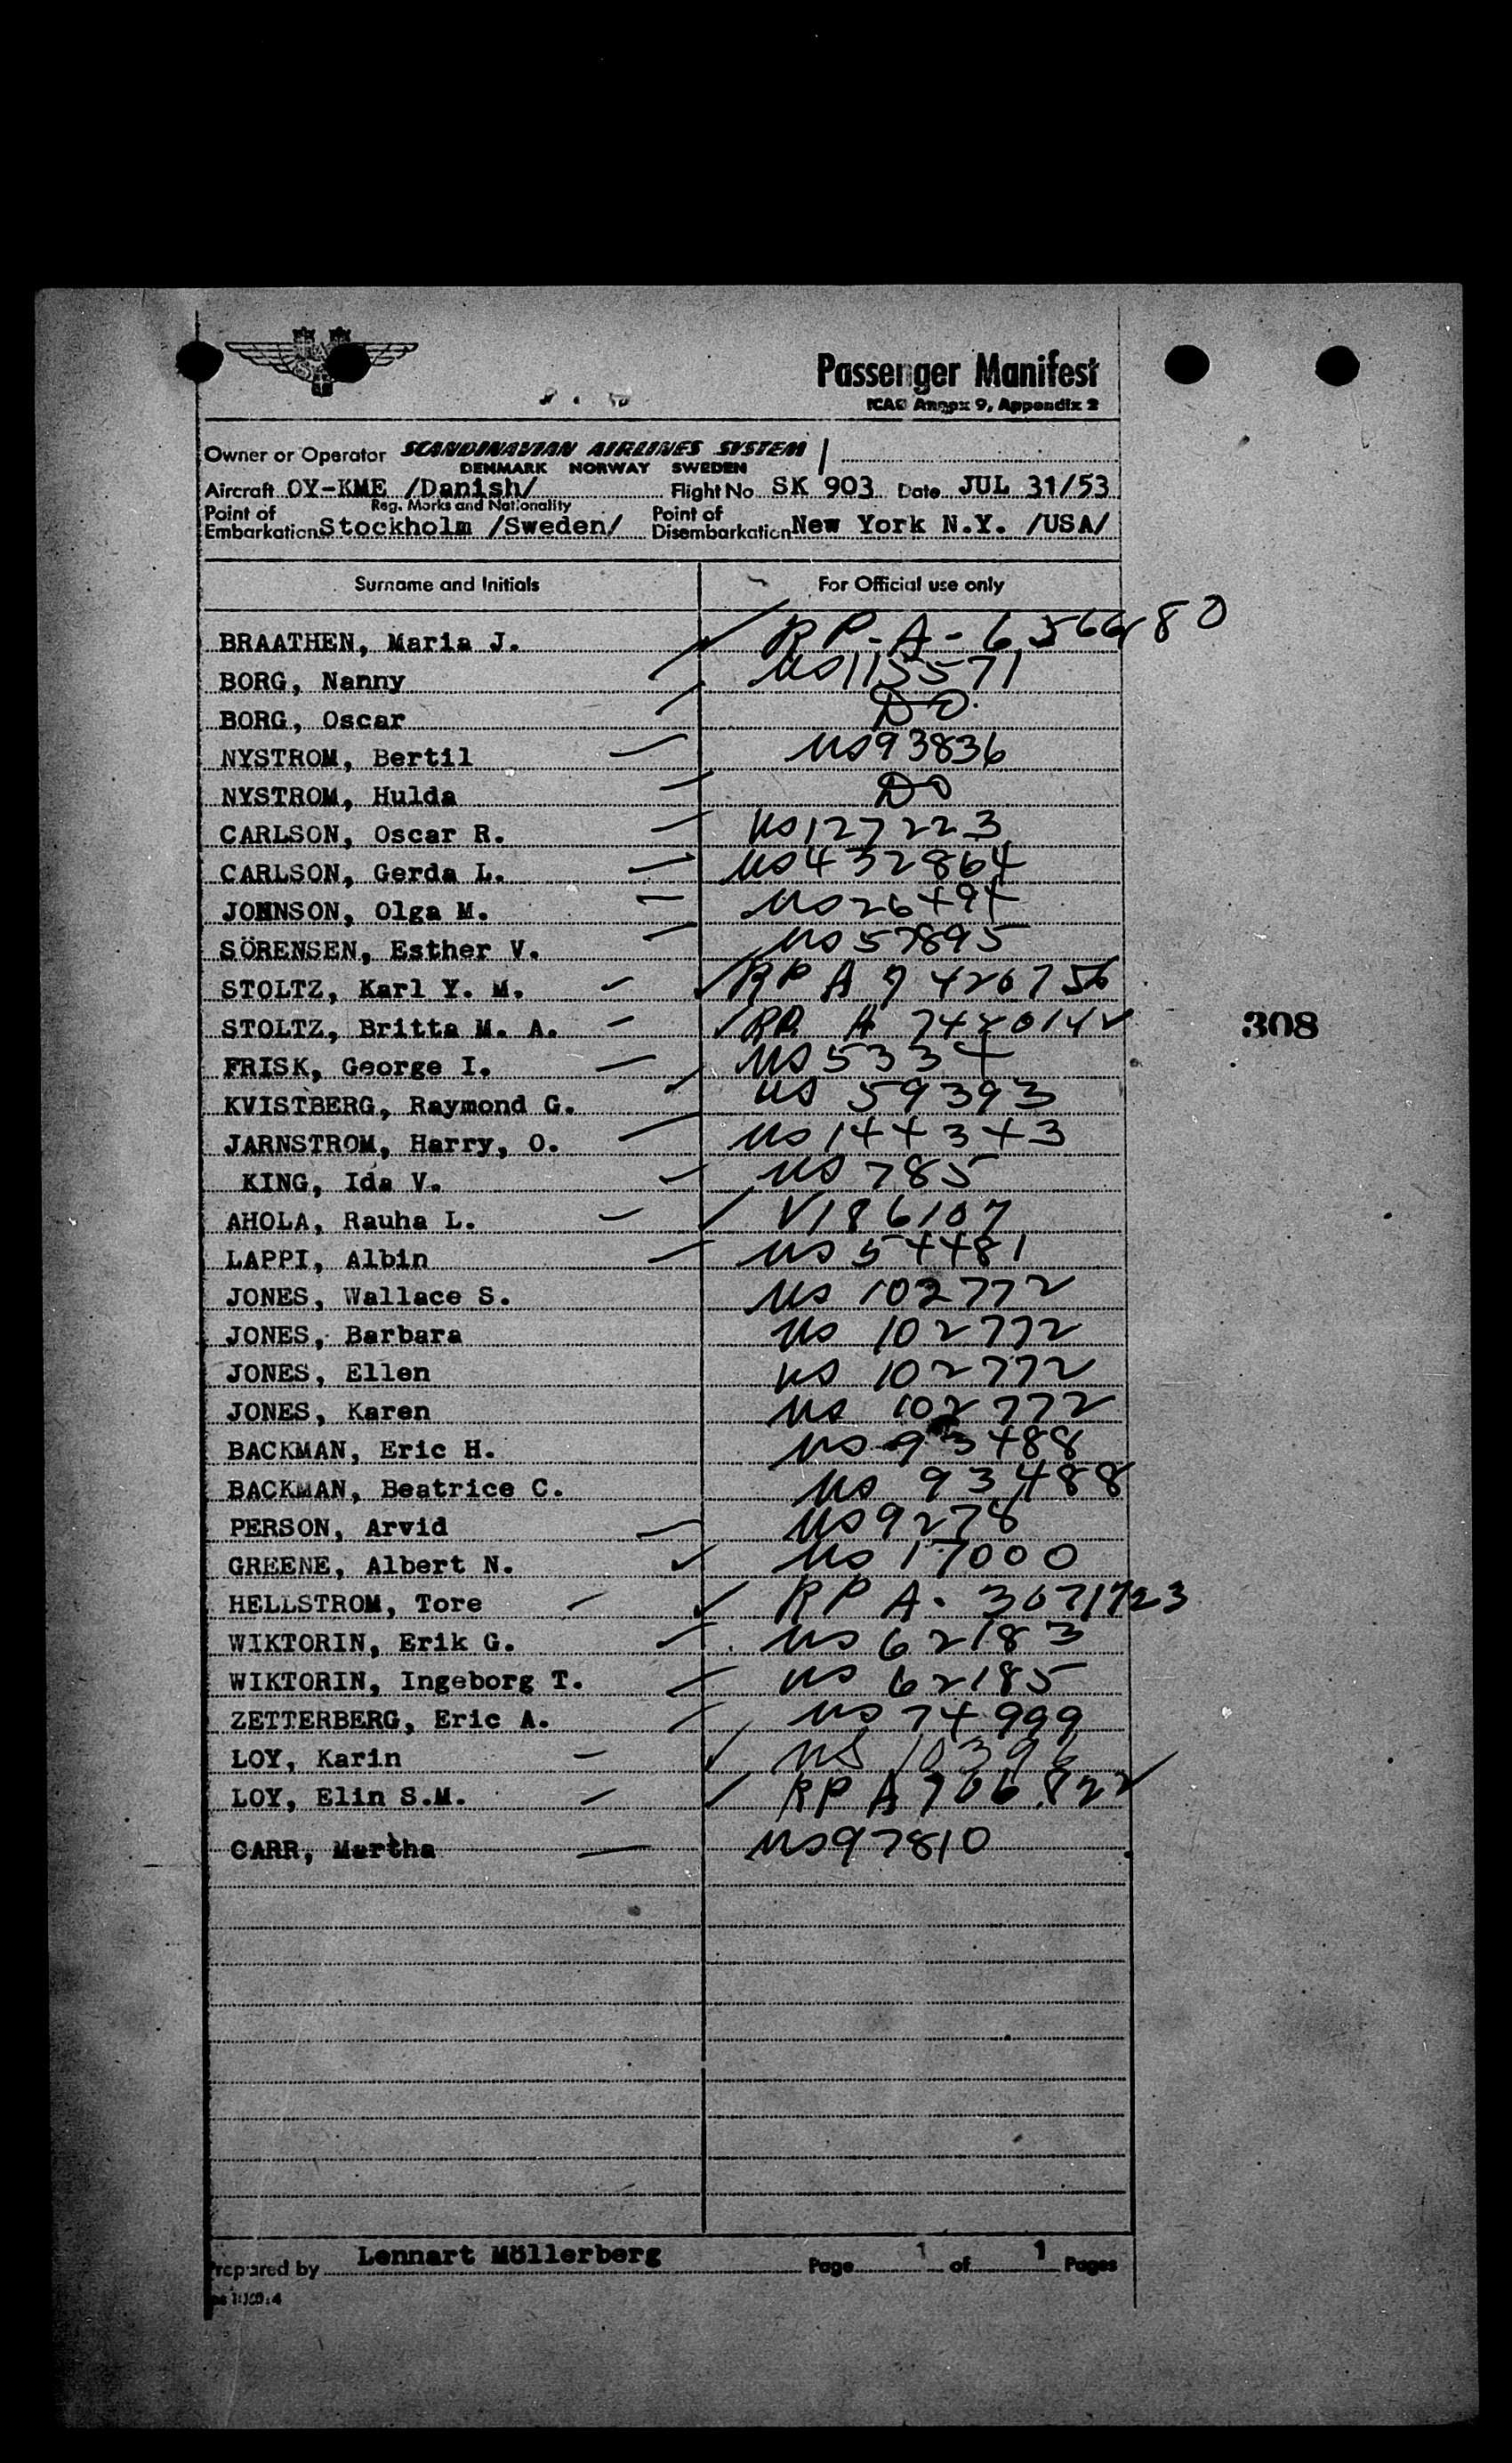 Passenger Manifest
ICAO Annex 9, Appendix 2
Owner or Operator SCANDINAVIAN AIRLINES SYSTEM
DENMARK NORWAY SWEDEN
Aircraft OY-KME /Danish/ Flight No SK 903 Date JUL 31/53
Reg. Marks and Nationality
Point of Embarkation Stockholm /Sweden/ Point of Disembarkation New York N.Y. /USA/
Surname and Initials For Official use only
BRAATHEN, Maria J. RP-A-6566180
BORG, Nanny US115571
BORG, Oscar DO.
NYSTROM, Bertil US93836
NYSTROM, Hulda DO
CARLSON, Oscar R. US127223
CARLSON, Gerda L. US432864
JOHNSON, Olga M. US26494
SÖRENSEN, Esther V. US57895
STOLTZ, Karl Y. M. RP A 7420756
STOLTZ, Britta M. A. RP A 7420142
308
FRISK, George I. US5334
KVISTBERG, Raymond G. US 59393
JARNSTROM, Harry, O. US144343
KING, Ida V. US 785
AHOLA, Rauha L. V186107
LAPPI, Albin US 54481
JONES, Wallace S. US 102772
JONES, Barbara US 102772
JONES, Ellen US 102772
JONES, Karen US 102772
BACKMAN, Eric H. US 93488
BACKMAN, Beatrice C. US 93488
PERSON, Arvid US9278
GREENE, Albert N. US 17000
HELLSTROM, Tore RP A. 3671723
WIKTORIN, Erik G. US 62183
WIKTORIN, Ingeborg T. US 62185
ZETTERBERG, Eric A. US 74999
LOY, Karin US 10396
LOY, Elin S.M. RP A 706 822
CARR, Martha US97810
Prepared by Lennart Möllerberg Page 1 of 1 Pages